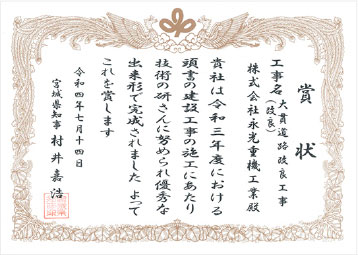 賞状
工事名 大貫道路改良工事
(改良)
株式会社永光重機工業殿
貴社は令和三年度における
頭書の建設工事の施工にあたり
技術の研さんに努められ優秀な
出来形で完成されました よって
これを賞します
令和四年七月十四日
宮城県知事 村井嘉浩